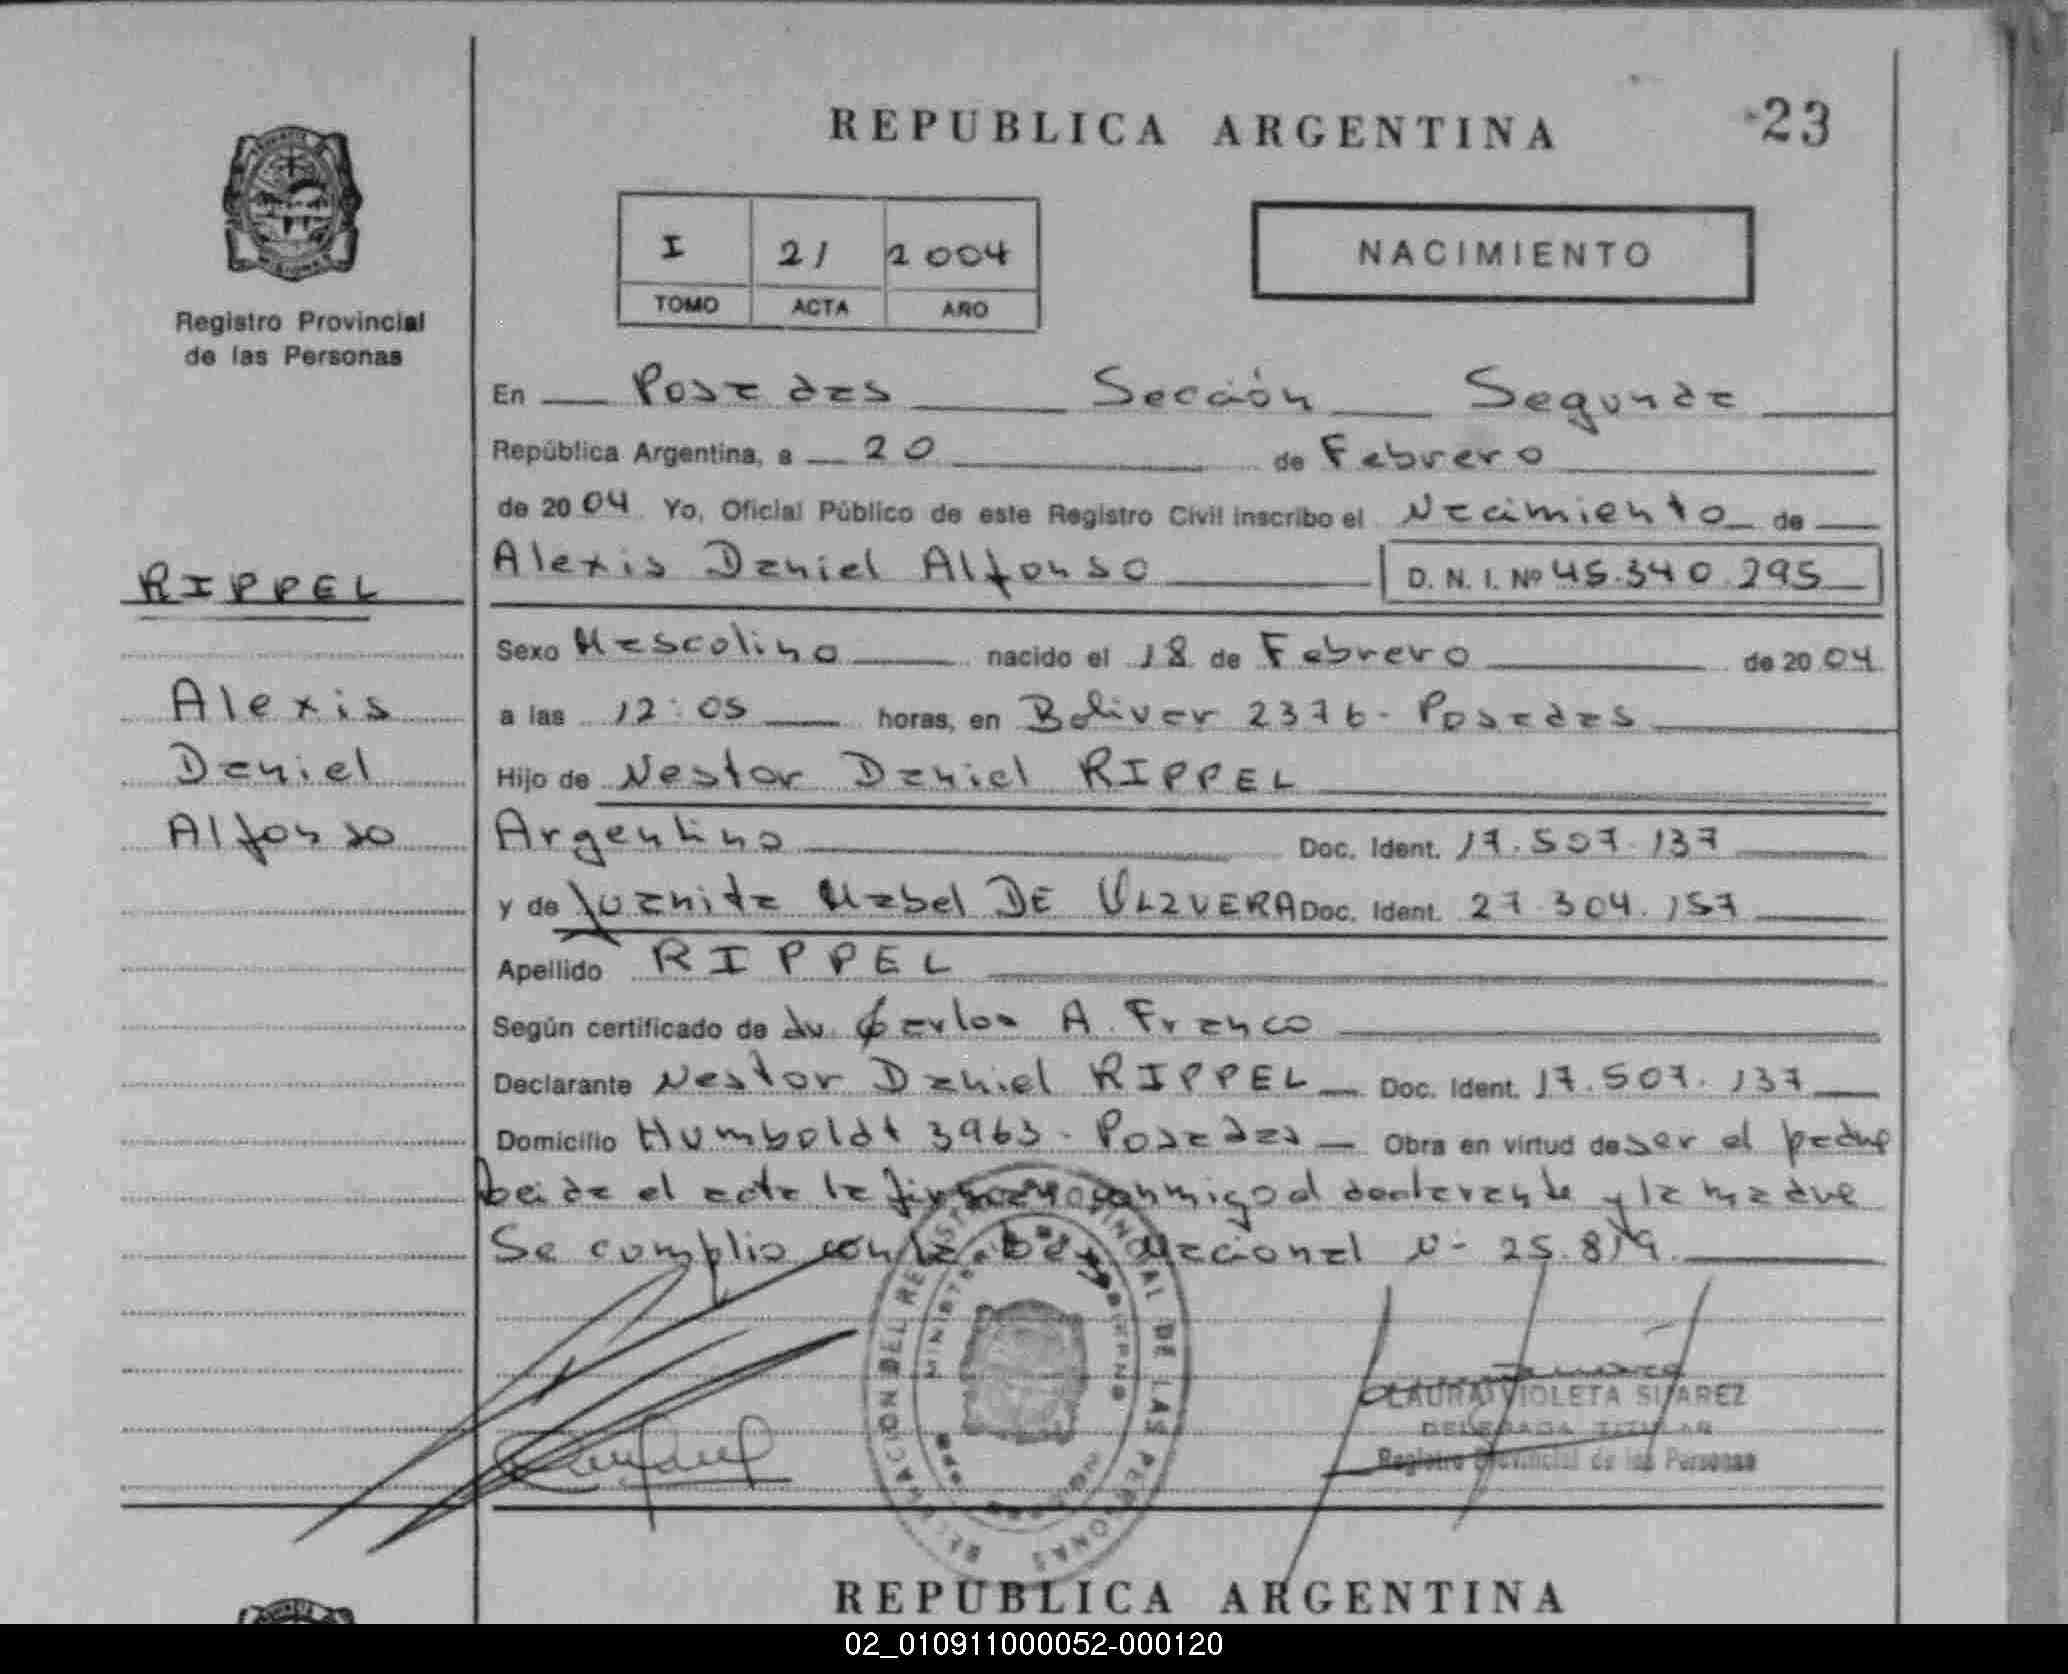 REPUBLICA ARGENTINA
23
Registro Provincial
de las Personas
I 21 2004
TOMO ACTA AÑO
NACIMIENTO
En Posadas Sección Segunda
República Argentina, a 20 de Febrero
de 2004 Yo, Oficial Público de este Registro Civil inscribo el Nacimiento de
RIPPEL
Alexis Daniel Alfonso D. N. I. Nº 45.340.295
Sexo Masculino nacido el 18 de Febrero de 2004
Alexis
a las 12:05 horas, en Bolivar 2376 - Posadas
Daniel
Hijo de Nestor Daniel RIPPEL
Alfonso
Argentino Doc. Ident. 17.507.137
y de Juanita Mabel DE Doc. Ident. 27.304.157
Apellido RIPPEL
Según certificado de dr. Carlos A. Franco
Declarante Nestor Daniel RIPPEL Doc. Ident. 17.507.137
Domicilio Humboldt 3963 - Posadas Obra en virtud de ser el padre
Leida el acta la firman conmigo el declarante y la madre
Se cumplio con la Ley Nacional N- 25.819.
DELEGACION DEL REGISTRO PROVINCIAL DE LAS PERSONAS
MINISTERIO DE GOBIERNO
LAURA VIOLETA SUAREZ
DELEGADA TITULAR
Registro Provincial de las Personas
REPUBLICA ARGENTINA
02_010911000052-000120